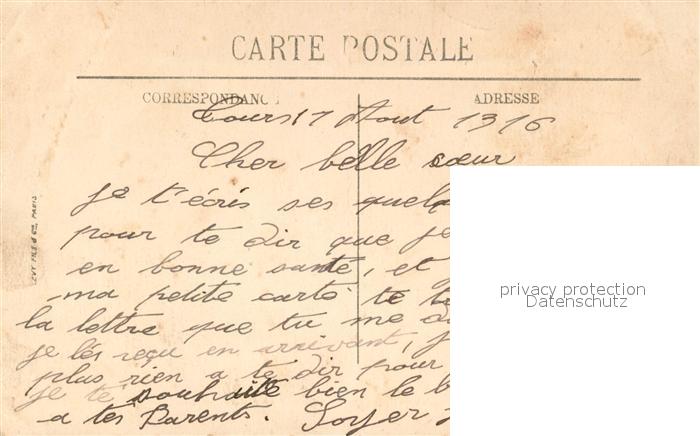 CARTE POSTALE
CORRESPONDANC
ADRESSE
Tours 17 Aout 1916
Cher belle sœur
je t'écris ses quelq
pour te dir que je
en bonne santé, et
ma petite carte te t
la lettre que tu me
je lés reçu en arrivant, j
plus rien a te dir pour
je te souhaite bien le b
a tes Parents. Soyer
LEVY FILS & Cie, PARIS
privacy protection
Datenschutz